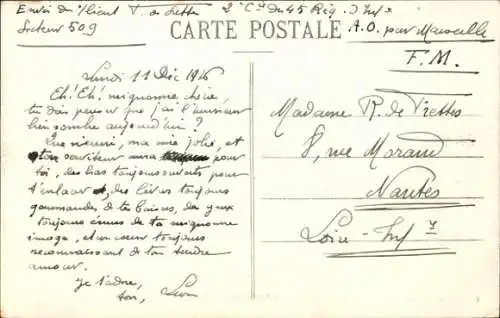 Envoi du Lient
2e Cie du 45 Rég. d'Infie
Secteur 509
CARTE POSTALE
A.O. par Marseille
F.M.
Lundi 11 Déc 1916
Eh! Eh! mignonne chérie,
tu dois penser que j'ai l'humeur
bien sombre aujourd'hui?
ma mie jolie, et
ton serviteur aura pour
toi, des bras toujours ouverts pour
t'enlacer, des lèvres toujours
gourmandes de tes baisers, des yeux
toujours émus de ta mignonne
image, et un cœur toujours
reconnaissant de ton tendre
amour.
Je t'adore,
ton, Léon
Madame R. de
8, rue Morand
Nantes
Loire-Infre